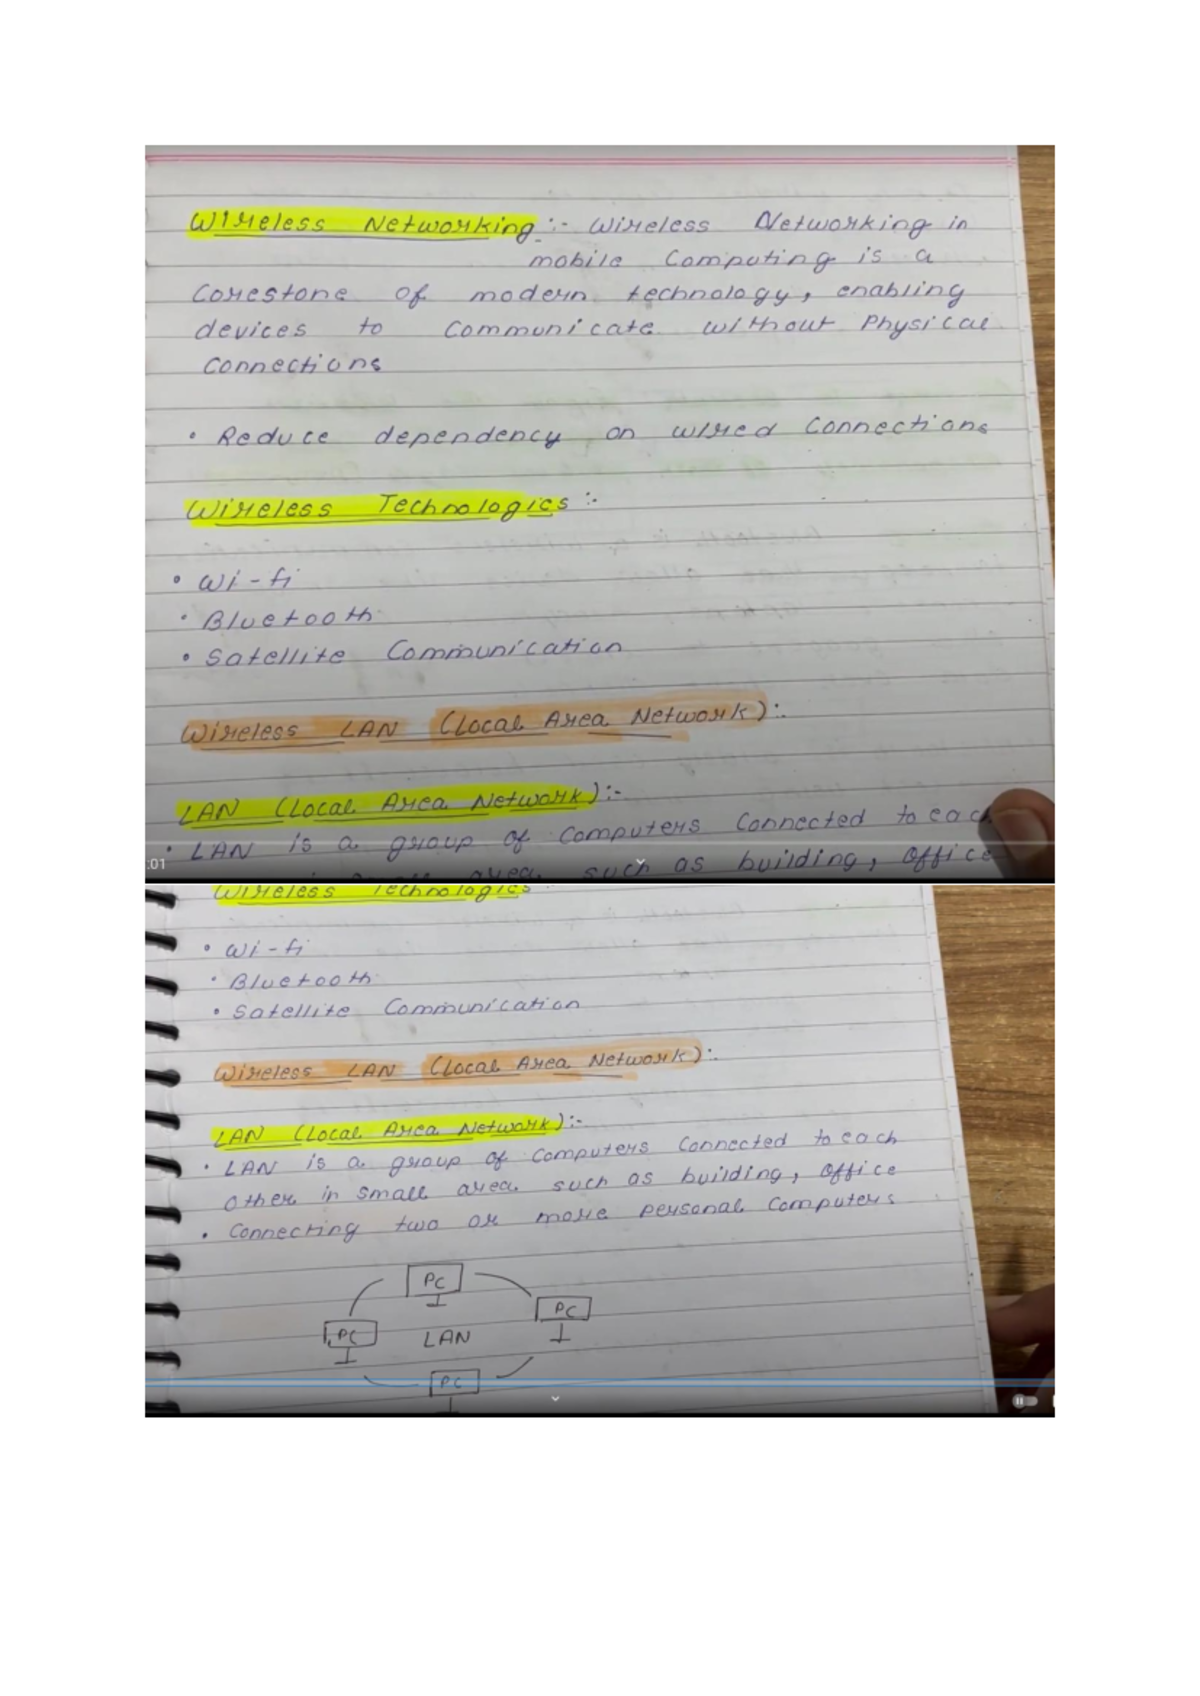 Wireless Networking :- Wireless Networking in
mobile Computing is a
Corestone of modern technology, enabling
devices to Communicate without Physical
Connections
• Reduce dependency on wired Connections
Wireless Technologies :-
• Wi-fi
• Bluetooth
• Satellite Communication
Wireless LAN (Local Area Network) :-
LAN (Local Area Network) :-
• LAN is a group of Computers Connected to each
area, such as building, office
:01
Wireless Technologies
• Wi-fi
• Bluetooth
• Satellite Communication
Wireless LAN (Local Area Network) :-
LAN (Local Area Network) :-
• LAN is a group of Computers Connected to each
other in small area such as building, office
• Connecting two or more personal Computers
PC
PC
PC
LAN
PC